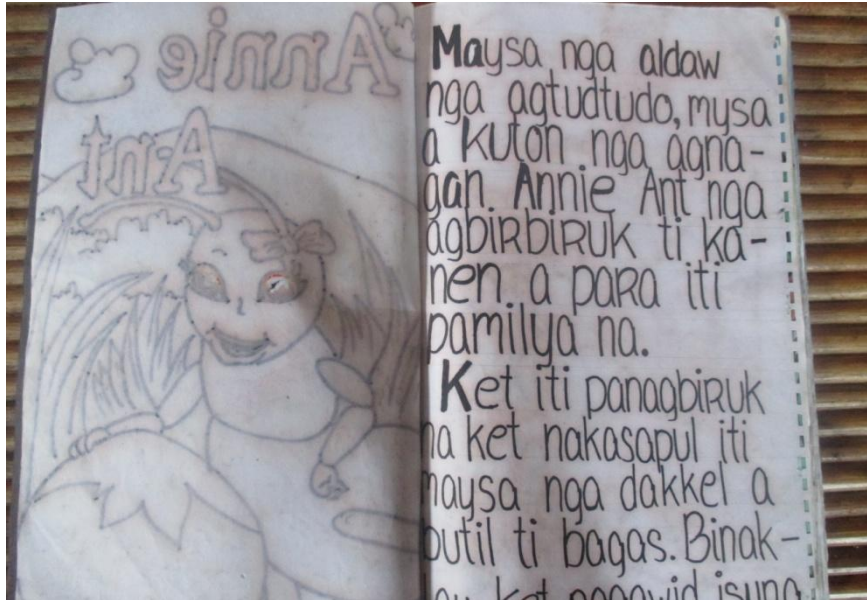 Annie
Ant
Maysa nga aldaw
nga agtudtudo, mysa
a kuton nga agna-
gan. Annie Ant nga
agbirbiruk ti ka-
nen a para iti
pamilya na.
Ket iti panagbiruk
na ket nakasapul iti
maysa nga dakkel a
butil ti bagas. Binak-
ket nagawid isuna